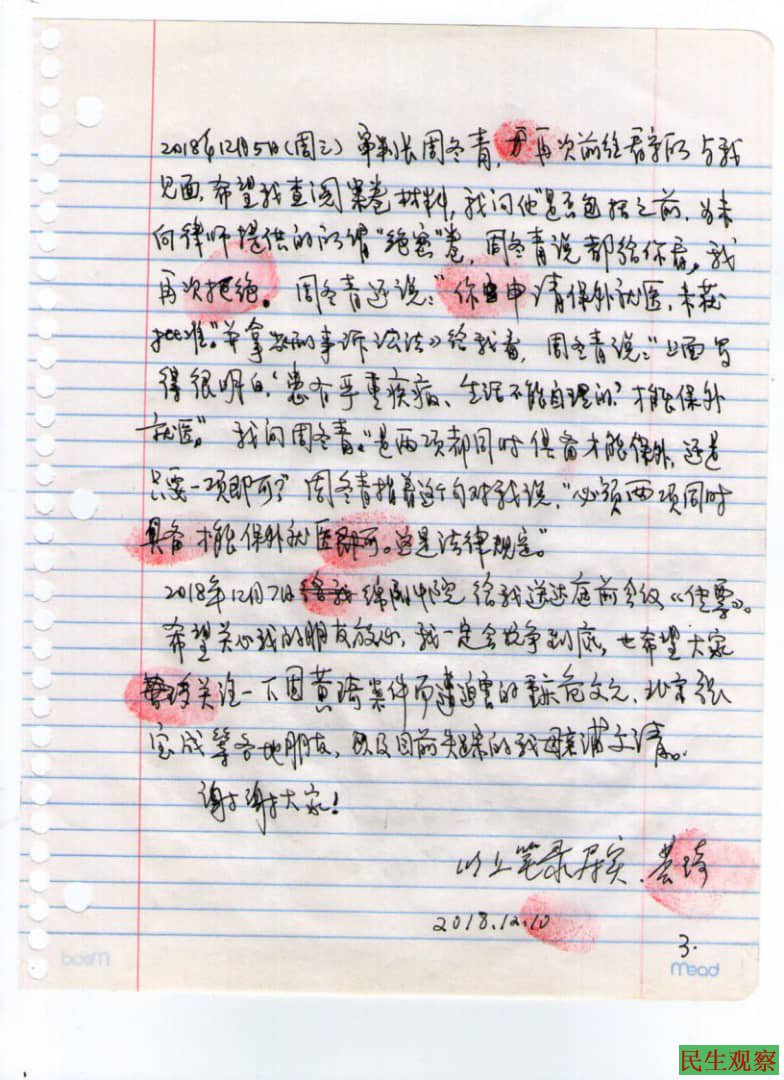 2018年12月5日(周三)审判长周冬青,再次前往看守所与我
见面,希望我查阅案卷材料,我问他"是否包括之前,
向律师提供的所谓"绝密"卷,周冬青说都给你看。我
再次拒绝。周冬青还说:"你申请保外就医,未获
批准。"并拿出《刑事诉讼法》给我看,周冬青说:"上面写
得很明白,'患有严重疾病、生活不能自理的'才能保外
就医。"我问周冬青:"是两项都同时俱备才能保外,还是
只要一项即可?"周冬青指着这个句对我说,"必须两项同时
具备才能保外就医即可。这是法律规定。"
2018年12月7日 绵阳中院给我送达庭前会议《传票》。
希望关心我的朋友放心,我一定会抗争到底,也希望大家
关注一下因黄琦案件而遭迫害的重庆范文元,北京张
宝成等各地朋友,以及目前失踪的我母亲浦文清。
谢谢大家!
以上笔录属实.黄琦
2018.12.10
3.
Mead
民生观察